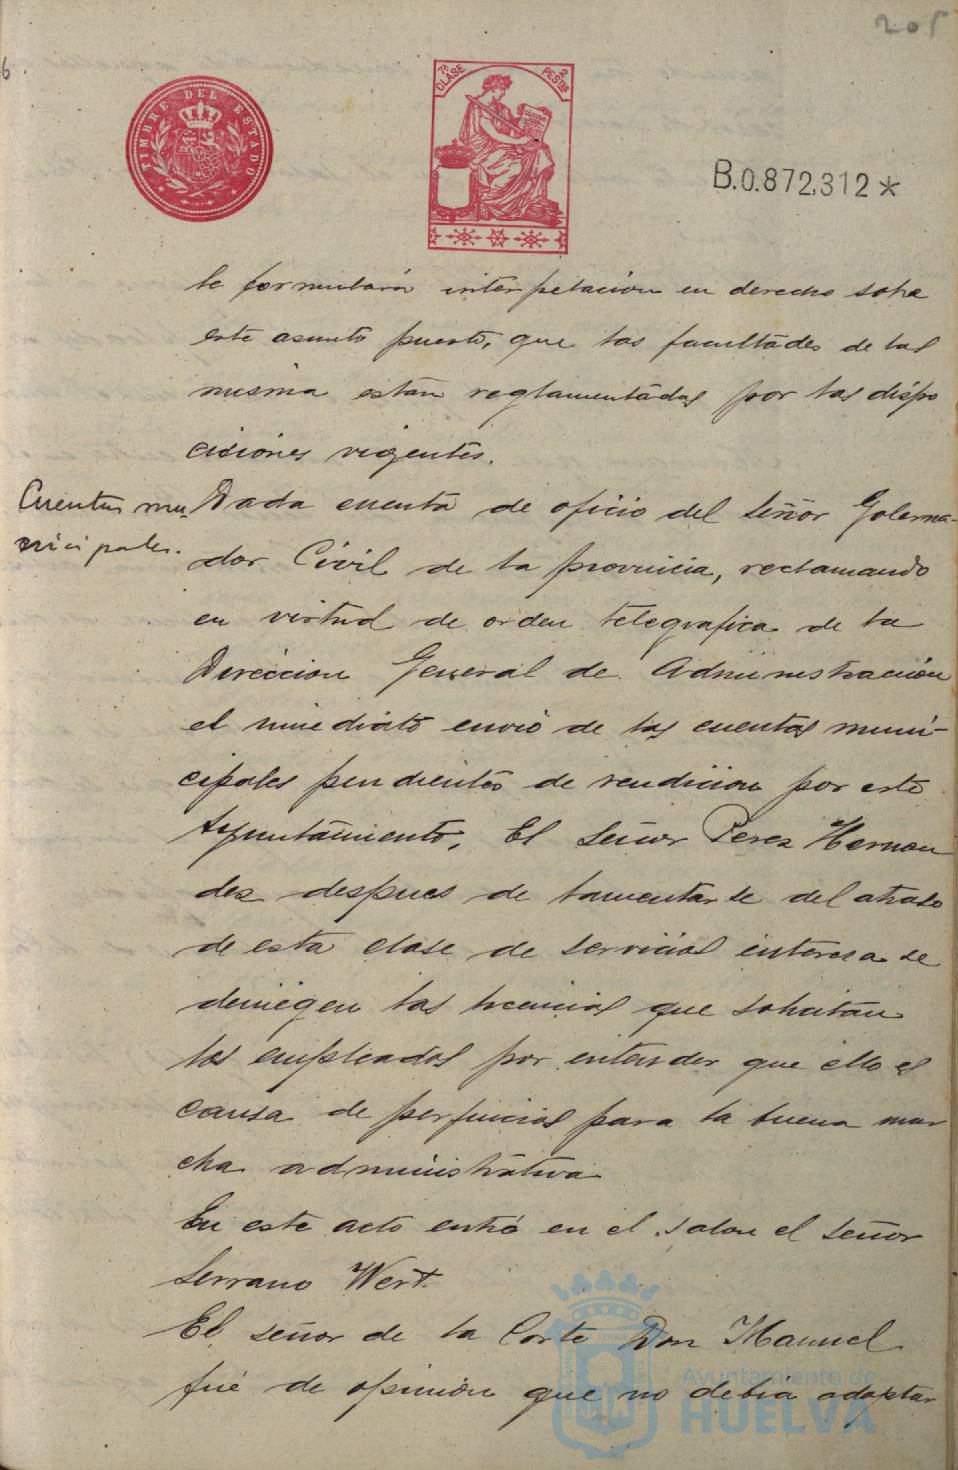 205
6
TIMBRE DEL ESTADO
7ª CLASE
2 PESTAS
B.0.872,312*
le formulará interpelación en derecho sobre
este asunto puesto, que las facultades de las
misma estan reglamentadas por las dispo
ciciones vigentes.
Cuentas mu-
nicipales.
Dada cuenta de oficio del Señor Goberna-
dor Civil de la provincia, reclamando
en virtud de orden telegrafica de la
Dirección General de Administración
el inmediato envió de las cuentas muni-
cipales pendientes de rendicion por este
Ayuntamiento, El Señor Perez Hernan
dez despues de lamentarse del atraso
de esta clase de servicios interesa se
deniegen las licencias que solicitan
los empleados por entender que ello es
causa de perjuicios para la buena mar
cha administrativa
En este acto entró en el salon el señor
Serrano Wert.
El señor de la Corte Don Manuel
fué de opinión que no debia adoptar
Ayuntamiento de
HUELVA